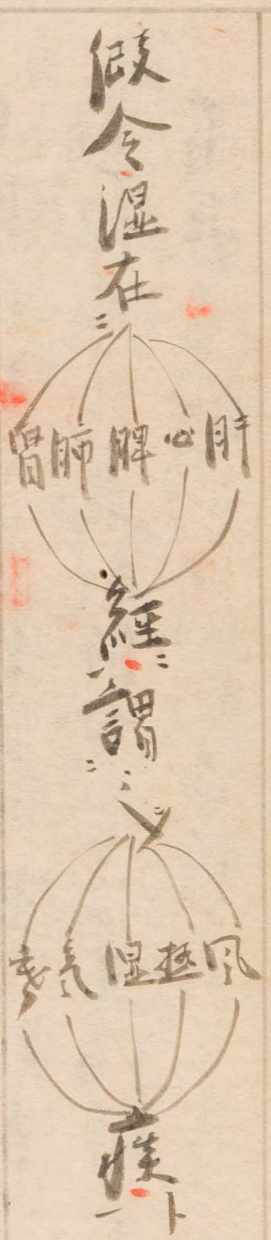 假令湿在
肝 心 脾 肺 腎
經謂之
風 熱 湿 氣 寒
痰